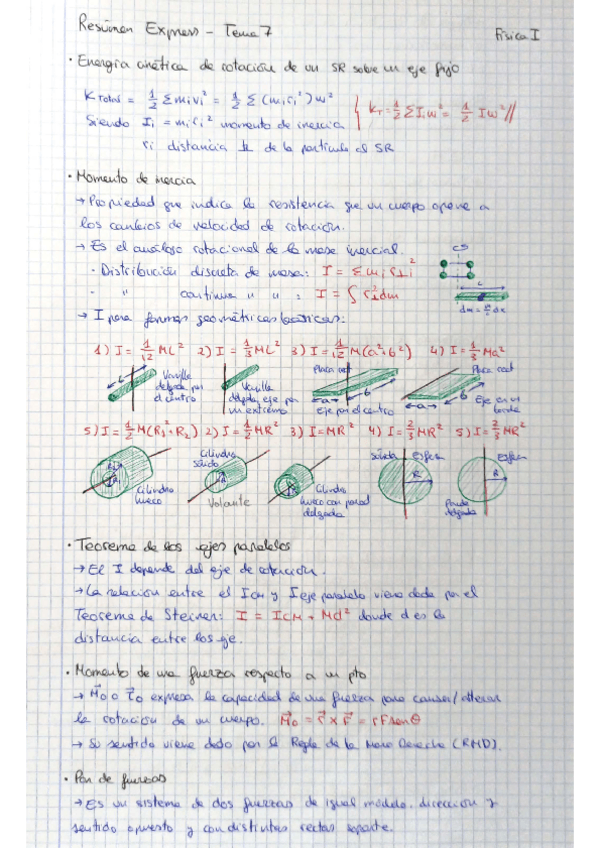 Resumen Express - Tema 7 Física I
· Energía cinética de rotación de un SR sobre un eje fijo
K Total = 1/2 Σ mi vi² = 1/2 Σ (mi ri²) ω² } KT = 1/2 Σ Ii ω² = 1/2 I ω² //
Siendo Ii = mi ri² momento de inercia
ri distancia ⊥ de la partícula al SR
· Momento de inercia
→ Propiedad que indica la resistencia que un cuerpo opone a
los cambios de velocidad de rotación.
→ Es el análogo rotacional de la masa inercial.
· Distribución discreta de masa: I = Σ mi r⊥i²
· " continua " " : I = ∫ r⊥² dm
→ I para formas geométricas básicas:
CS
L
dm = M/L dx
1) I = 1/12 ML² 2) I = 1/3 ML² 3) I = 1/12 M(a²+b²) 4) I = 1/3 Ma²
L Varilla delgada por el centro
Varilla delgada, eje por un extremo
Placa rect a b Eje por el centro
Placa rect a b Eje en un borde
5) I = 1/2 M(R1² + R2) 2) I = 1/2 MR² 3) I = MR² 4) I = 2/3 MR² 5) I = 2/3 MR²
Cilindro hueco
Cilindro sólido R Volante
Cilindro hueco con pared delgada
Sólida Esfera R
Esfera R Pared delgada
· Teorema de los ejes paralelos
→ El I depende del eje de rotación.
→ La relación entre el ICM y I eje paralelo viene dada por el
Teorema de Steiner: I = ICM + Md² donde d es la
distancia entre los eje.
· Momento de una fuerza respecto a un pto
→ M⃗o o τ⃗o expresa la capacidad de una fuerza para causar/alterar
la rotación de un cuerpo. M⃗o = r⃗ x F⃗ = rFsenθ
→ Su sentido viene dado por la Regla de la Mano Derecha (RMD).
· Par de fuerzas
→ Es un sistema de dos fuerzas de igual módulo, dirección y
sentido opuesto y con distintas rectas soporte.